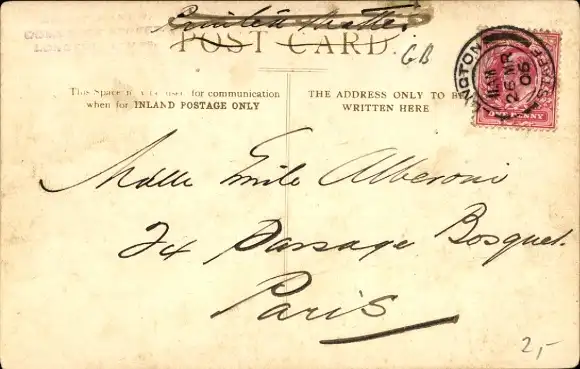 Printed Matter
POST CARD.
GB
This Space may be used for communication
when for INLAND POSTAGE ONLY
THE ADDRESS ONLY TO BE
WRITTEN HERE
11 AM
26 MR
05
PENNY
Mdlle Emile Alberoni
24 Passage Bosquet.
Paris
2,-